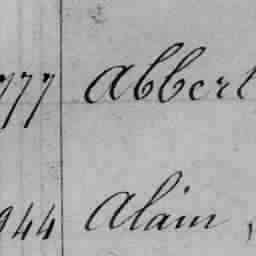 777 Abbert
944 Alain,